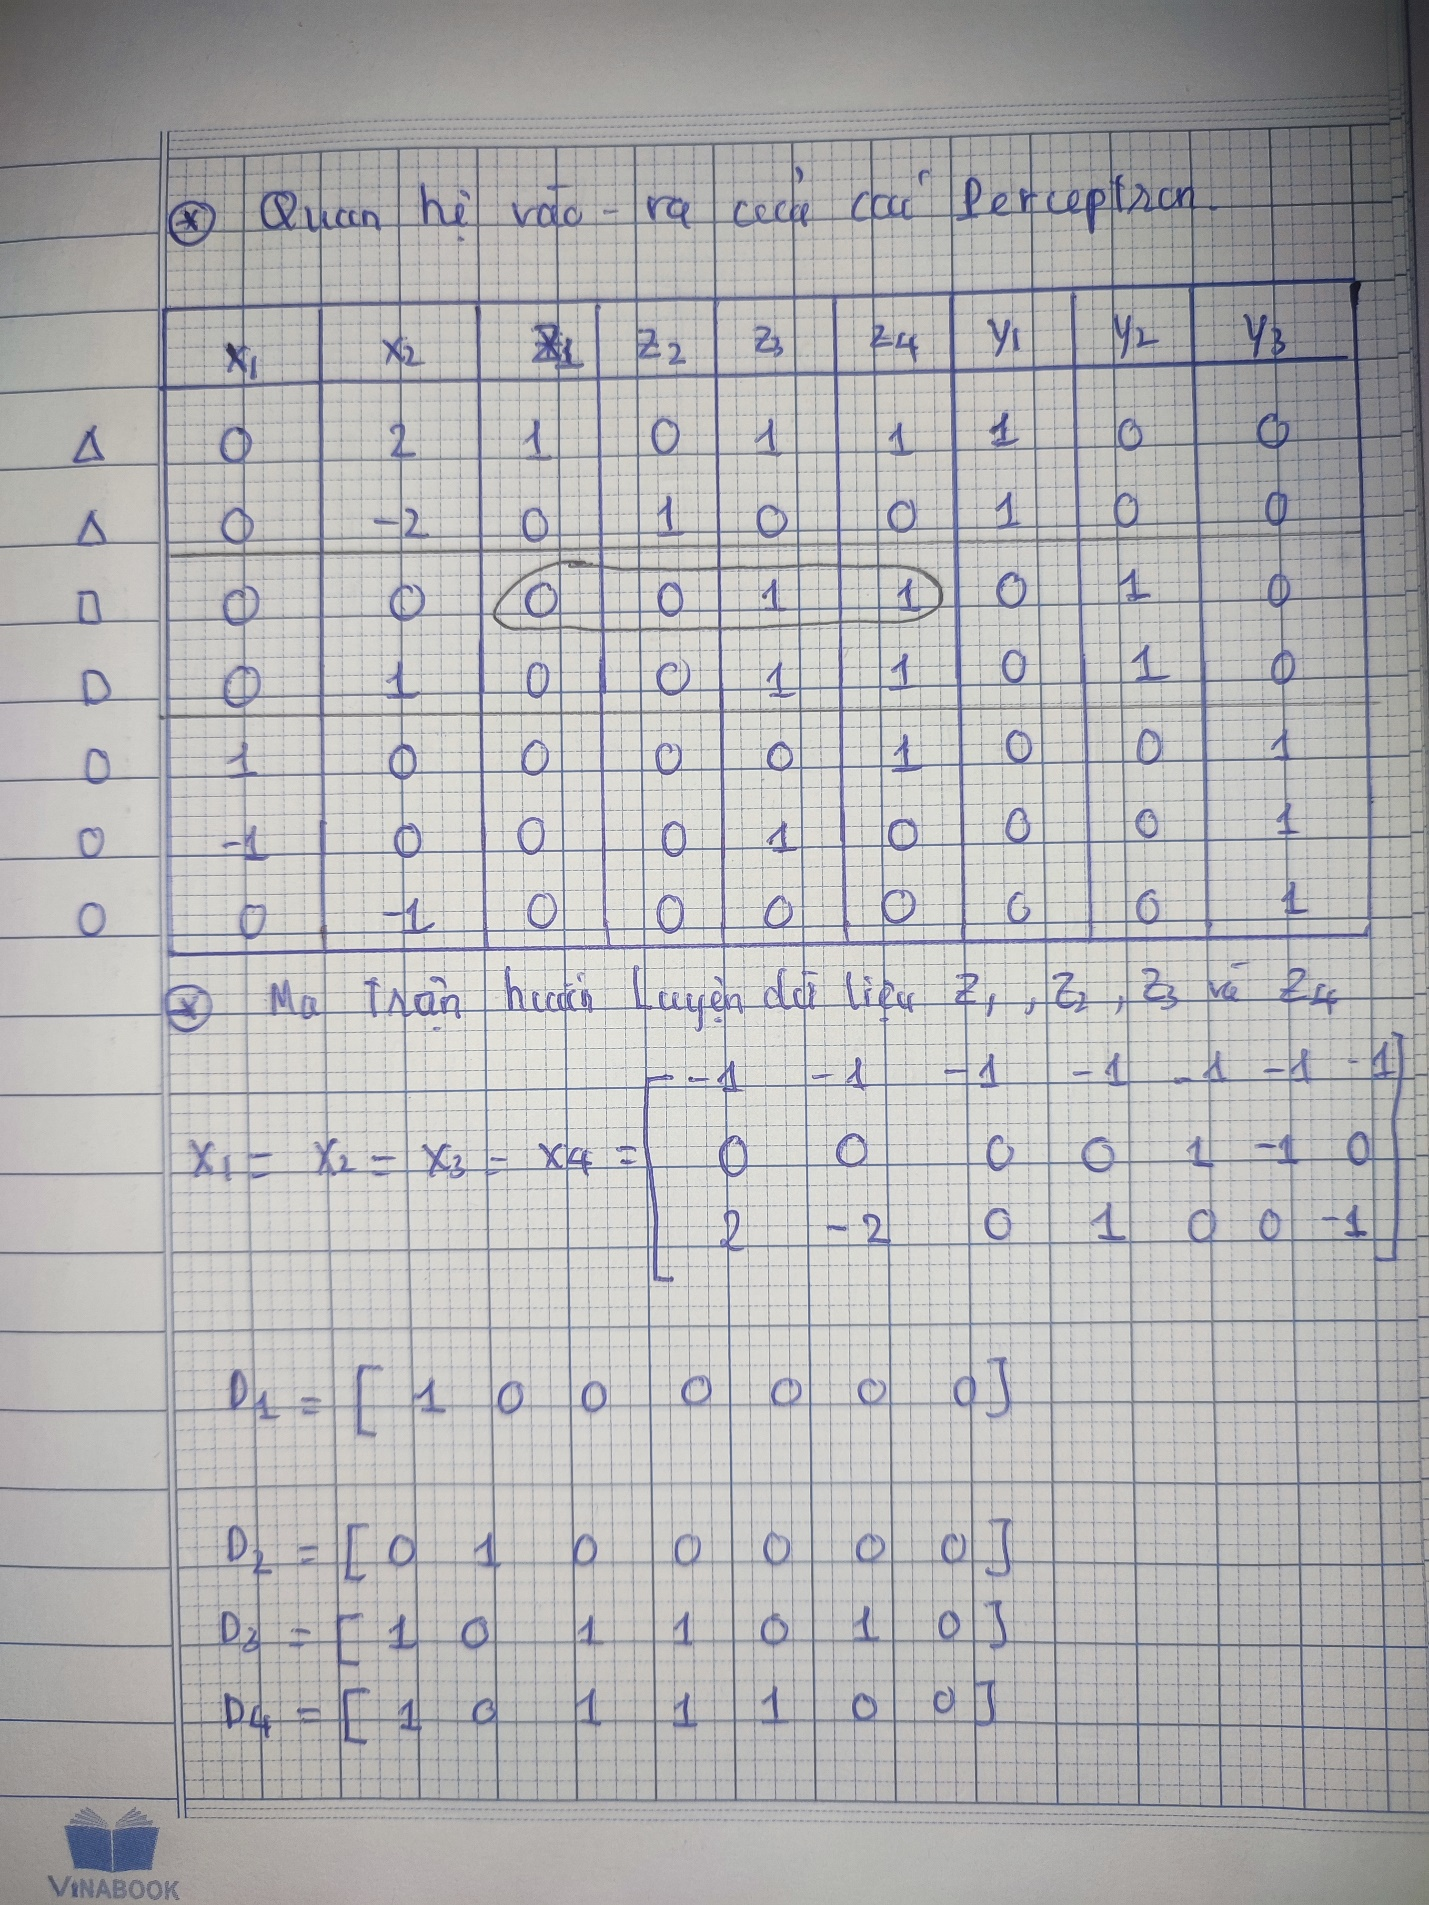 ⊛ Quan hệ vào - ra của các Perceptron.
x1 x2 Z1 Z2 Z3 Z4 y1 y2 y3
Δ 0 2 1 0 1 1 1 0 0
Δ 0 -2 0 1 0 0 1 0 0
□ 0 0 0 0 1 1 0 1 0
□ 0 1 0 0 1 1 0 1 0
O 1 0 0 0 0 1 0 0 1
O -1 0 0 0 1 0 0 0 1
O 0 -1 0 0 0 0 0 0 1
⊛ Ma trận huấn luyện dữ liệu Z1, Z2, Z3 và Z4
-1 -1 -1 -1 -1 -1 -1
X1 = X2 = X3 = X4 = [ 0 0 0 0 1 -1 0 ]
2 -2 0 1 0 0 -1
D1 = [ 1 0 0 0 0 0 0 ]
D2 = [ 0 1 0 0 0 0 0 ]
D3 = [ 1 0 1 1 0 1 0 ]
D4 = [ 1 0 1 1 1 0 0 ]
ViNABOOK